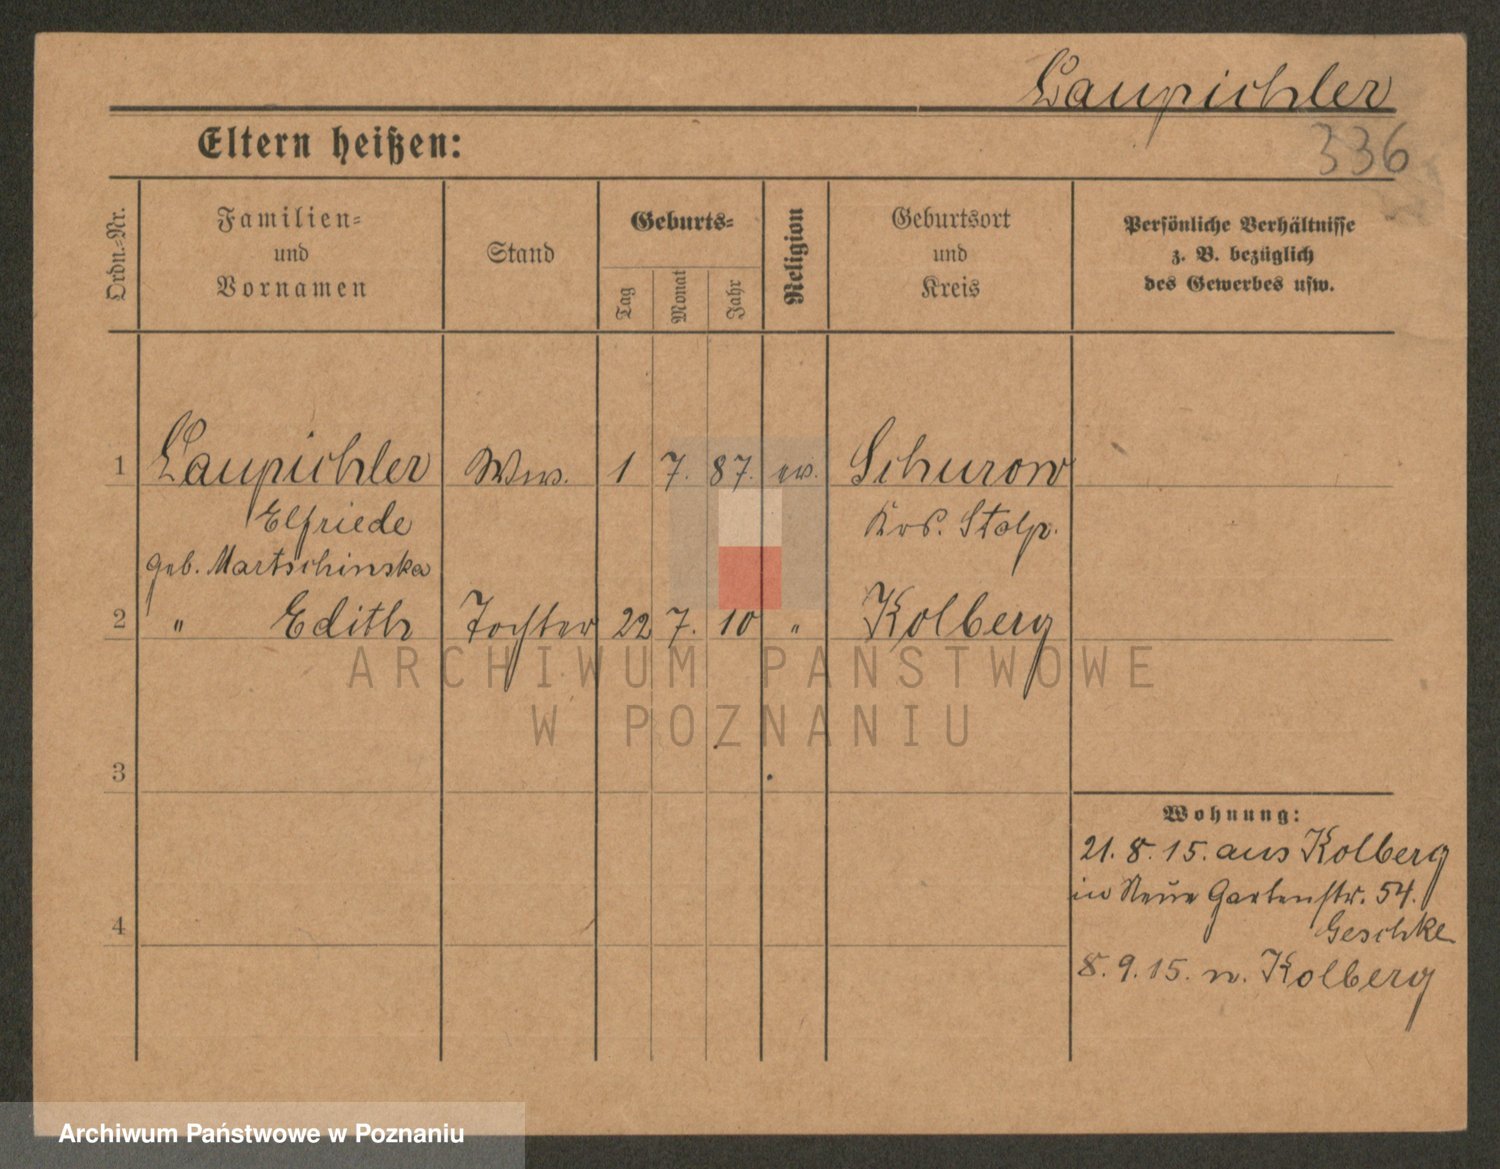 Laupichler
Eltern heißen:
336
Ordn.-Nr.
Familien-
und
Vornamen
Stand
Geburts-
Tag
Monat
Jahr
Religion
Geburtsort
und
Kreis
Persönliche Verhältnisse
z. B. bezüglich
des Gewerbes usw.
1 Laupichler Ww. 1 7. 87. ev. Schurow
Elfriede Krs. Stolp.
geb. Martschinska
2 " Edith Tochter 22 7. 10 " Kolberg
ARCHIWUM PAŃSTWOWE
W POZNANIU
3
Wohnung:
21. 8. 15. aus Kolberg
in Neue Gartenstr. 54.
4
Geschke
8. 9. 15. n. Kolberg
Archiwum Państwowe w Poznaniu